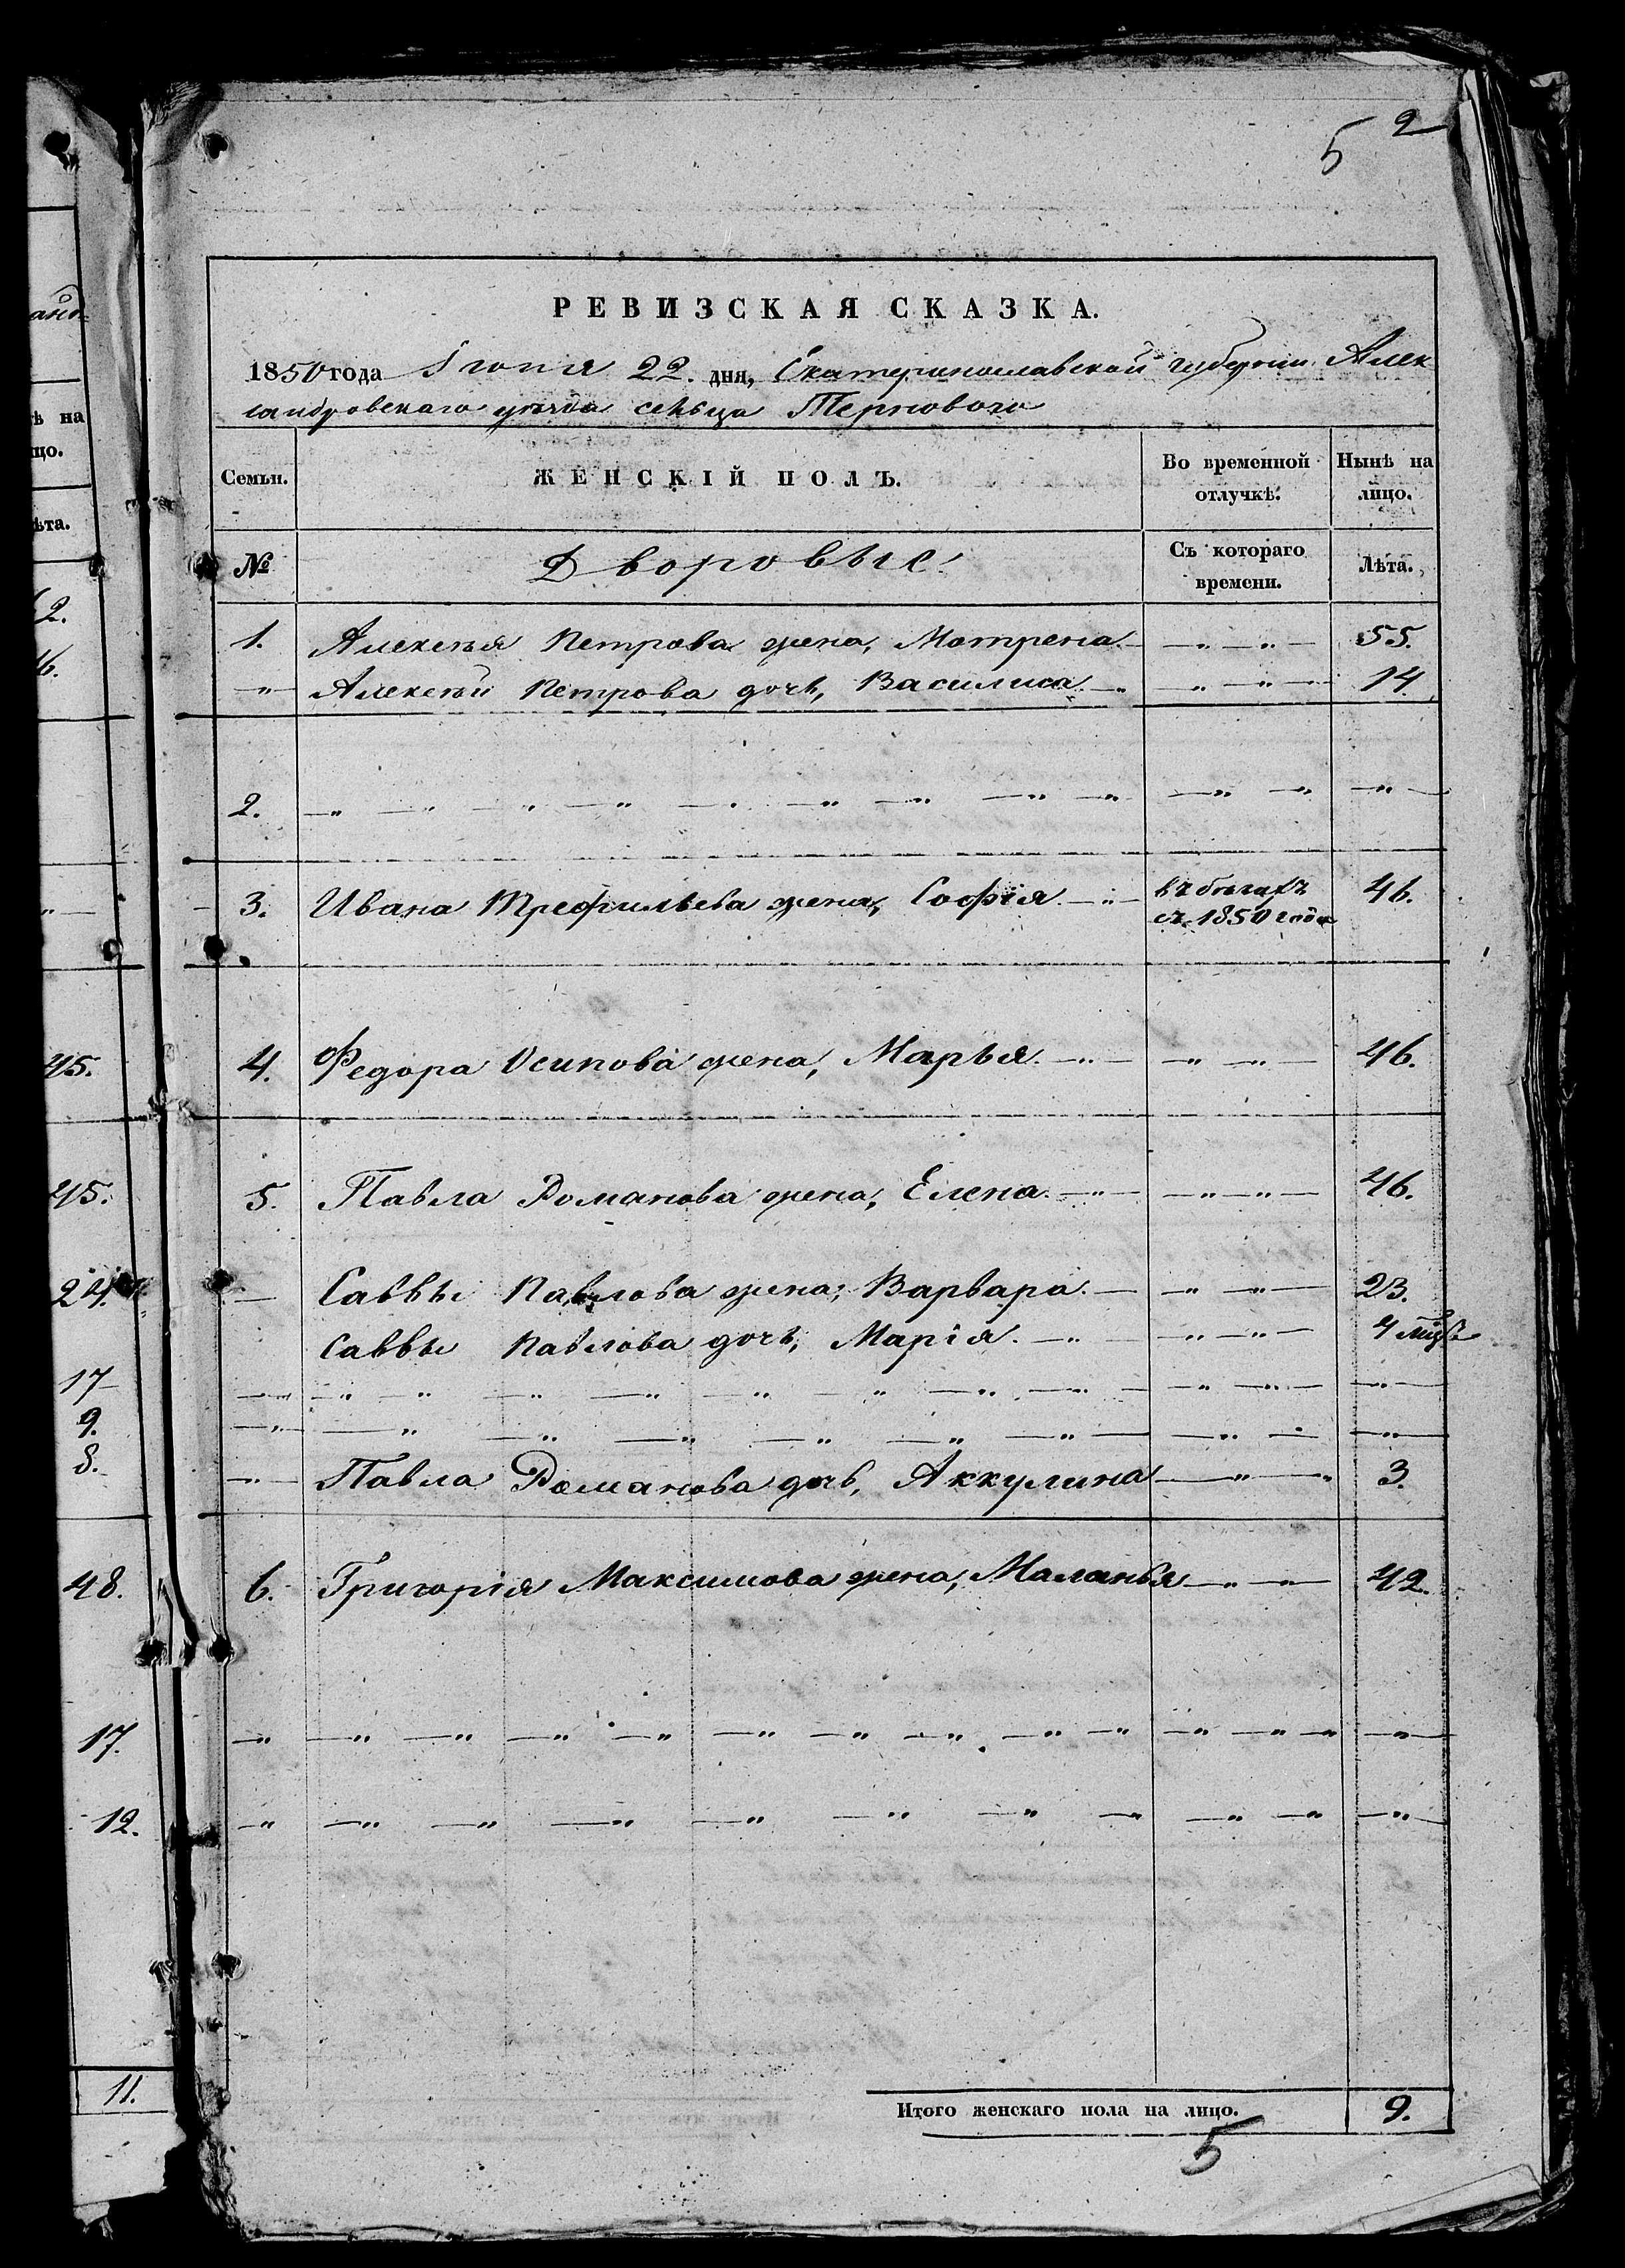 5 2
РЕВИЗСКАЯ СКАЗКА.
1850 года Iюня 22. дня, Екатеринославской губерніи Алек-
сандровскаго уѣзда сельца Терноваго
Семьи.
ЖЕНСКІЙ ПОЛЪ.
Во временной отлучкѣ.
Нынѣ на лицо.
№
Дворовые.
Съ котораго времени.
Лѣта.
1. Алексѣя Петрова жена, Мотрена. — „ — „ — 55.
— „ — Алексѣя Петрова дочь, Василиса. — „ — „ — „ — 14
2. — „ — „ — „ — „ — „ — „ — „ — „ — „ — „ — „ — „ —
3. Ивана Трефильева жена, Софія. — „ — въ бѣгахъ 46.
съ 1850 года
4. Федора Осипова жена, Марья. — „ — — „ — „ — 46.
5. Павла Романова жена, Елена. — „ — — „ — „ — 46.
— Саввы Павлова жена, Варвара. — — „ — „ — 23.
Саввы Павлова дочь, Марія. — „ — „ — „ — 4 мѣс.
— „ — „ — „ — „ — „ — „ — „ — „ — „ — „ — „ — „ —
— „ — „ — „ — „ — „ — „ — „ — „ — „ — „ —
— „ — Павла Романова дочь, Аккулина — „ — „ 3.
6. Григорія Максимова жена, Маланья — „ — „ 42.
— „ — „ — „ — „ — „ — „ — „ — „ — „ — „ — „ — „ — „ — „ —
— „ — „ — „ — „ — „ — „ — „ — „ — „ — „ — „ —
Итого женскаго пола на лицо. 9.
5
анд-
ѣ на
цо.
ѣта.
2.
6.
„ —
45.
45.
24.
17
9.
8.
48.
17.
12.
11.